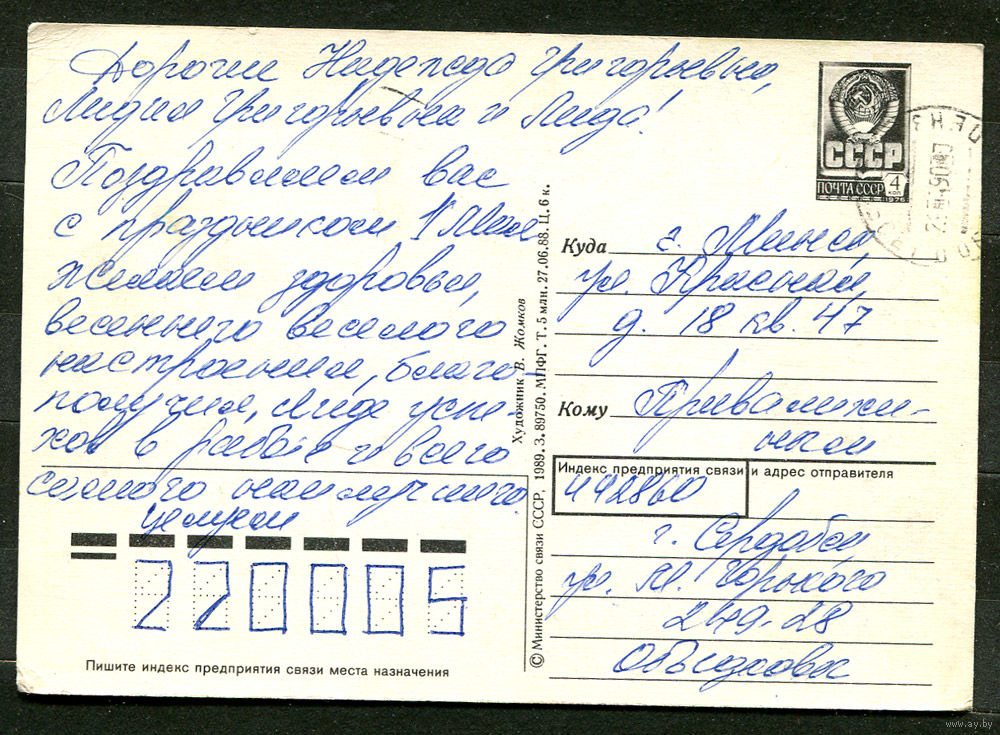 Дорогие Надежда Григорьевна,
Лидия Григорьевна и Лида!
Поздравляем вас
с праздником 1 Мая
желаем здоровья,
весеннего веселого
настроения, благо-
получия, Лиде успе-
хов в работе и всего
самого наилучшего.
Целуем
220005
Пишите индекс предприятия связи места назначения
© Министерство связи СССР, 1989. З. 89750. МПФГ. Т. 5 млн. 27.06.88. Ц. 6 к.
Художник В. Жомков
СССР
ПОЧТА СССР 4 КОП
1976
Куда г. Минск,
ул. Красная,
д. 18 кв. 47
Кому
Индекс предприятия связи и адрес отправителя
442860
г. Сердобск
ул. М. Горького
249-28
www.ay.by